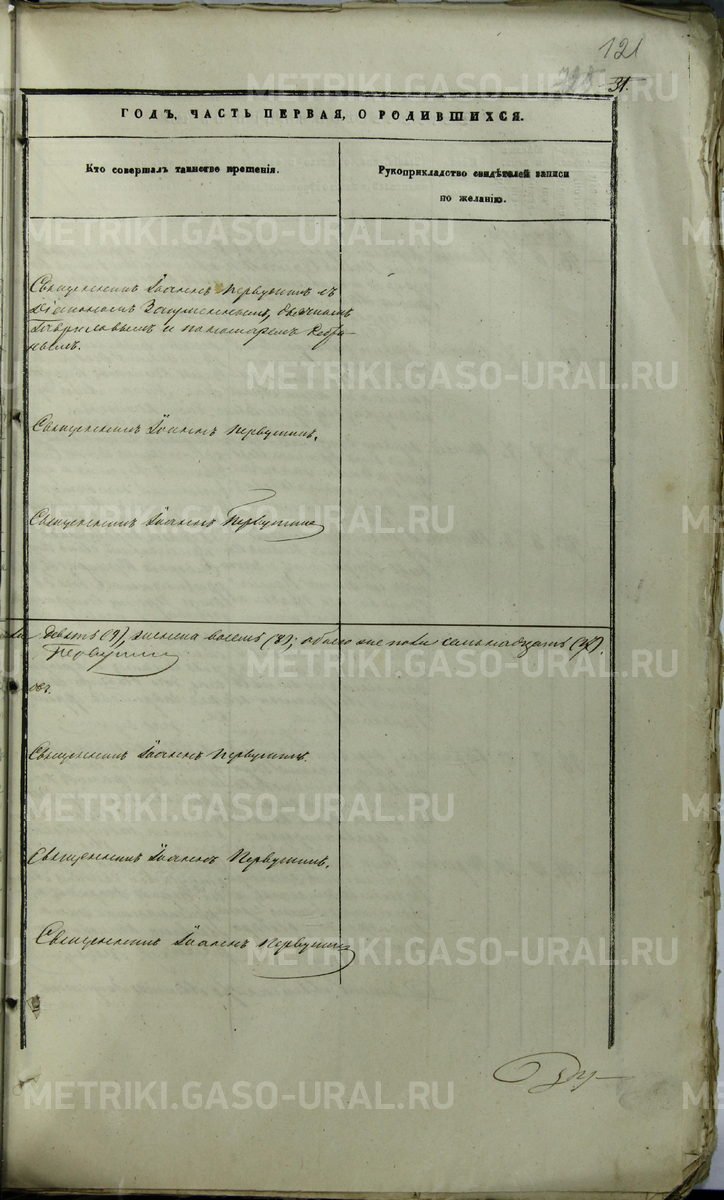 121
31.
ГОДЪ, ЧАСТЬ ПЕРВАЯ, О РОДИВШИХСЯ.
Кто совершалъ таинство крещенія.
Рукоприкладство свидѣтелей записи
по желанію.
Священникъ Іоаннъ Первушинъ съ
Діакономъ дьячкомъ
Гавриловымъ и пономаремъ
Священникъ Іоаннъ Первушинъ.
Священникъ Іоаннъ Первушинъ
девять (9), женска восемь (8), обоего же пола семьнадцать (17).
Первушинъ
Священникъ Іоаннъ Первушинъ.
Священникъ Іоаннъ Первушинъ.
Священникъ Іоаннъ Первушинъ
METRIKI.GASO-URAL.RU